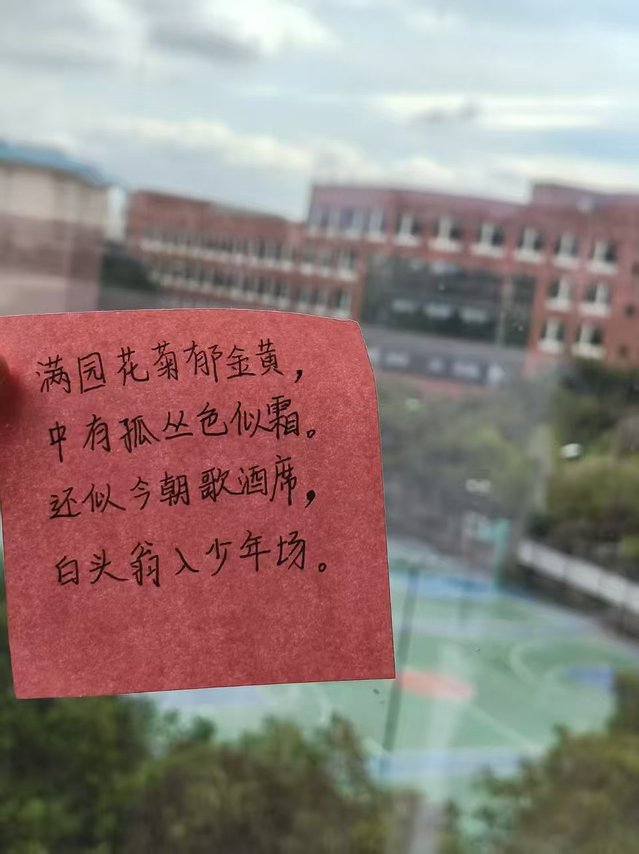 满园花菊郁金黄，
中有孤丛色似霜。
还似今朝歌酒席，
白头翁入少年场。